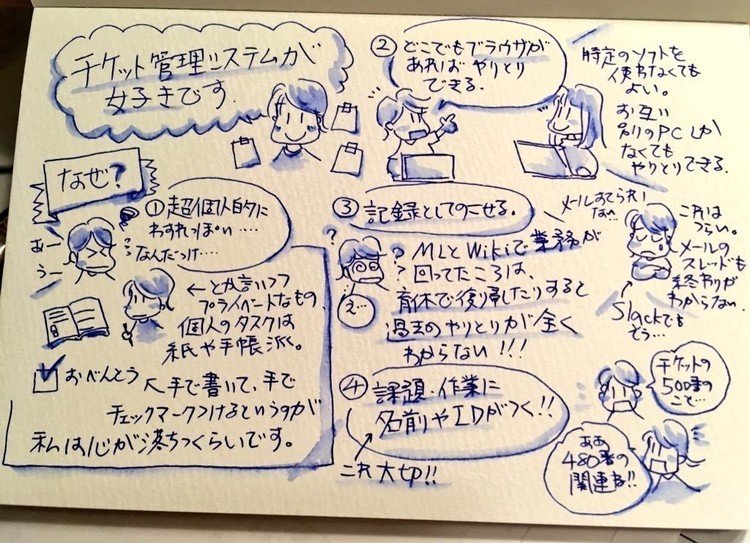 チケット管理システムが
好きです
なぜ?
①超個人的に
わすれっぽい……
なんだっけ……
あー
うー
?
←とか言いつつ
プライベートなもの
個人のタスクは
紙や手帳派。
おべんとう
手で書いて、手で
チェックマークつけるというのが
私は心が落ちつくらいです。
②どこでもブラウザが
あれば やりとり
できる。
特定のソフトを
使わなくても
よい。
お互い
別のPCしか
なくても
やりとりできる。
③記録としてのこせる。
メールすてられ
ない…
?
?
?
MLとWikiで業務が
回ってたころは、
育休で復帰したりすると
過去のやりとりが全く
わからない!!!
え…
これは
つらい。
メールの
スレッドも
終わりが
わからない。
Slackでも
そう…
④課題・作業に
名前やIDがつく!!
これ大切!!
チケットの
500番の
こと…
ああ
480番の
関連ね!!